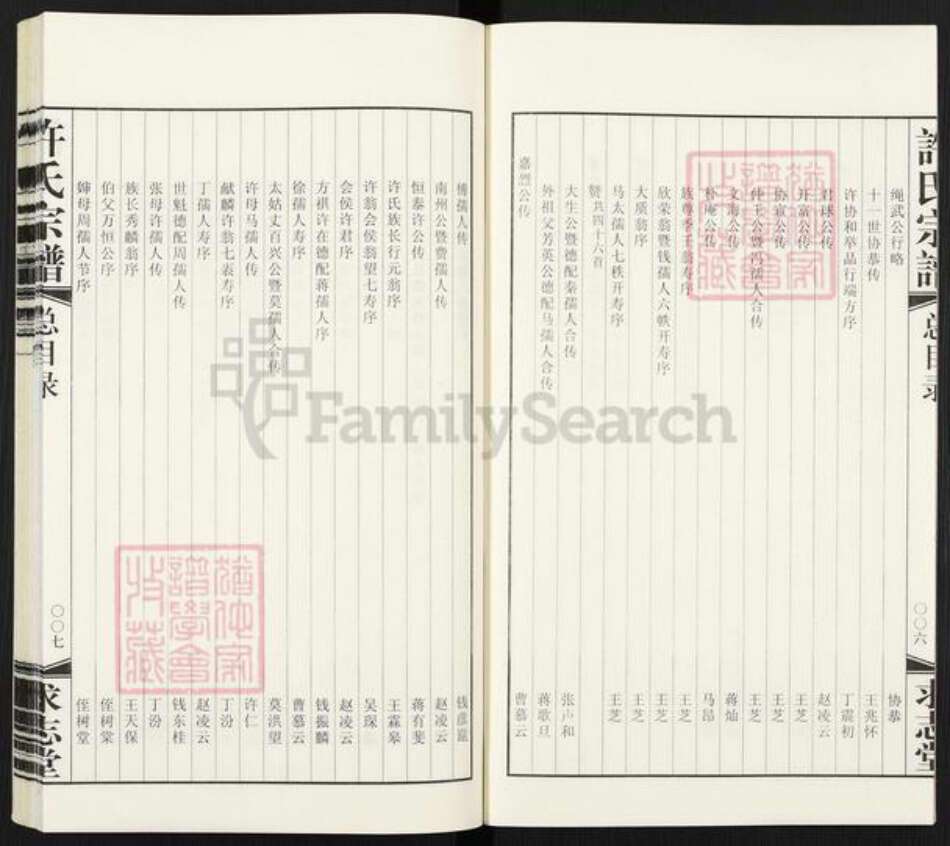 許氏宗譜
总目录
〇〇六
求志堂
绳武公行略 协恭
十一世协恭传 王兆怀
许协和举品行端方序 丁震初
君球公传 赵凌云
开富公传 王芝
协宣公传 王芝
仲玉公暨冯孺人合传 王芝
文海公传 蒋灿
朴庵公传 马昂
族尊季玉翁寿序 王芝
欣荣翁暨钱孺人六帙开寿序 王芝
大质翁寿序 王芝
马太孺人七秩开寿序 王芝
暨共四十六首
大生公暨德配秦孺人合传 张声和
外祖父芳英公德配马孺人合传 蒋歌旦
嘉烈公传 曹慕云
博孺人传
南州公暨费孺人传 赵凌云
恒泰许公传 蒋有斐
许氏族长行元翁序 王霖皋
许翁会侯翁望七寿序 吴琛
会侯许君序 赵凌云
方祺许在德配蒋孺人序 钱振麟
徐孺人寿序 曹慕云
太姑丈百兴公暨莫孺人合传 莫洪望
许母马孺人传 许仁
献麟许翁七袠寿序 丁汾
丁孺人寿序 赵凌云
世魁德配周孺人传 钱东桂
张母许孺人传 丁汾
族长秀麟翁序 王天保
伯父万恒公序 侄树棠
婶母周孺人节序 侄树堂
许氏宗谱
总目录
〇〇七
求志堂